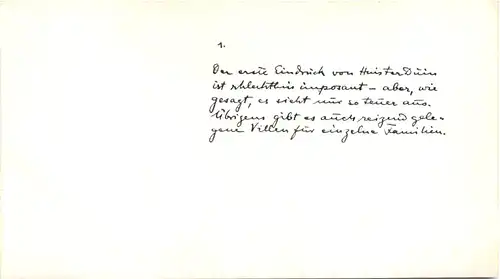 1.
Der erste Eindruck von Huister Duin
ist schlechthin imposant – aber, wie
gesagt, es sieht nur so teuer aus.
Übrigens gibt es auch reizend gele-
gene Villen für einzelne Familien.